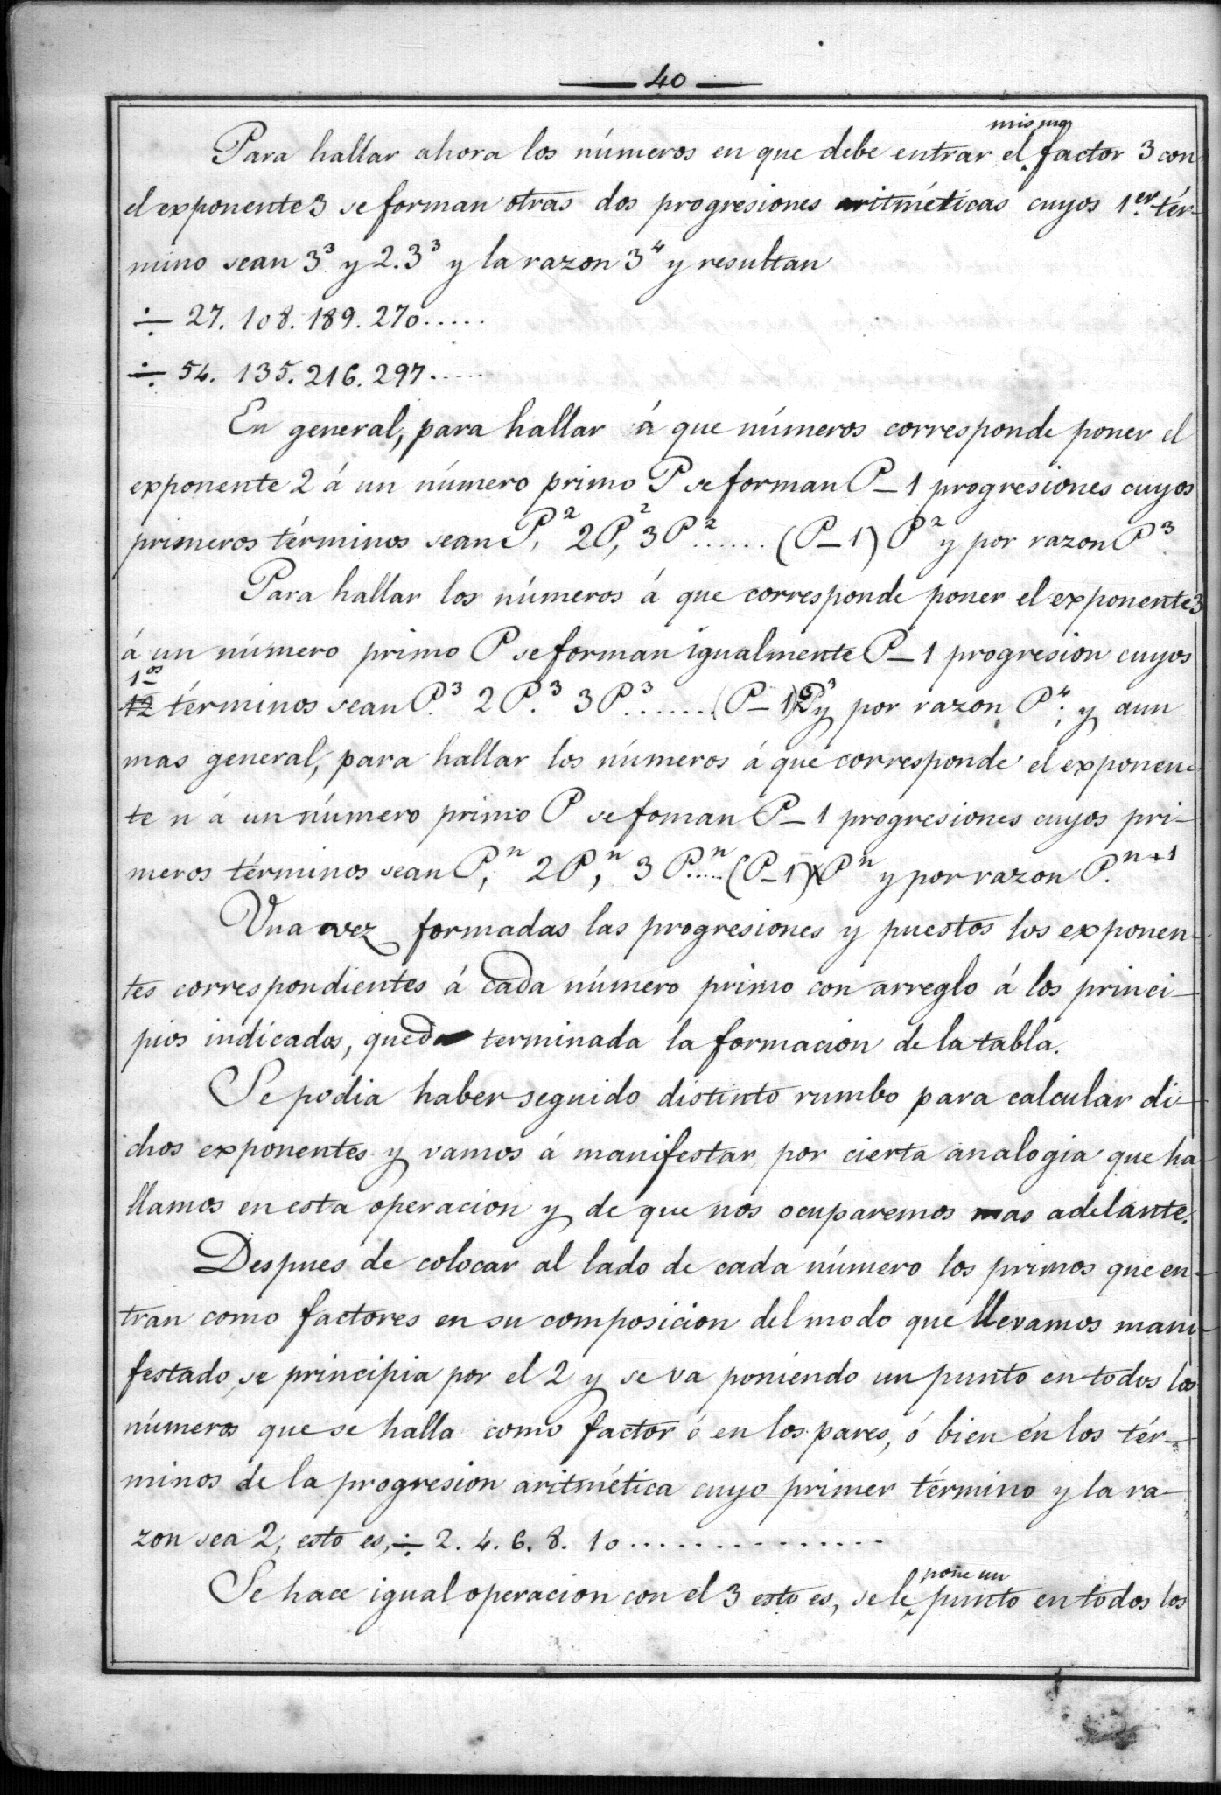 — 40 —
Para hallar ahora los números en que debe entrar el mismo factor 3 con
el exponente 3 se forman otras dos progresiones aritméticas cuyos 1er tér-
mino sean 3³ y 2.3³ y la razon 3⁴ y resultan
÷ 27. 108. 189. 270.....
÷ 54. 135. 216. 297.....
En general, para hallar á que números corresponde poner el
exponente 2 á un número primo P se forman P–1 progresiones cuyos
primeros términos sean P², 2P², 3P²...... (P–1) P² y por razon P³.
Para hallar los números á que corresponde poner el exponente 3
á un número primo P se forman igualmente P–1 progresion cuyos
1os términos sean P³. 2P.³ 3P³.......(P–1)P³ y por razon P⁴; y aun
mas general, para hallar los números á que corresponde el exponen-
te n á un número primo P se foman P–1 progresiones cuyos pri-
meros términos sean Pⁿ, 2Pⁿ, 3Pⁿ.....(P–1)×Pⁿ y por razon Pⁿ⁺¹.
Una vez formadas las progresiones y puestos los exponen-
tes correspondientes á cada número primo con arreglo á los princi-
pios indicados, queda terminada la formacion de la tabla.
Se podia haber seguido distinto rumbo para calcular di-
chos exponentes y vamos á manifestar por cierta analogia que ha
llamos en esta operacion y de que nos ocuparemos mas adelante.
Despues de colocar al lado de cada número los primos que en-
tran como factores en su composicion del modo que llevamos mani-
festado, se principia por el 2 y se va poniendo un punto en todos los
números que se halla como factor ó en los pares, ó bien én los tér-
minos de la progresion aritmética cuyo primer término y la ra-
zon sea 2, esto es, ÷ 2. 4. 6. 8. 10...............
Se hace igual operacion con el 3 esto es, se le pone un punto en todos los